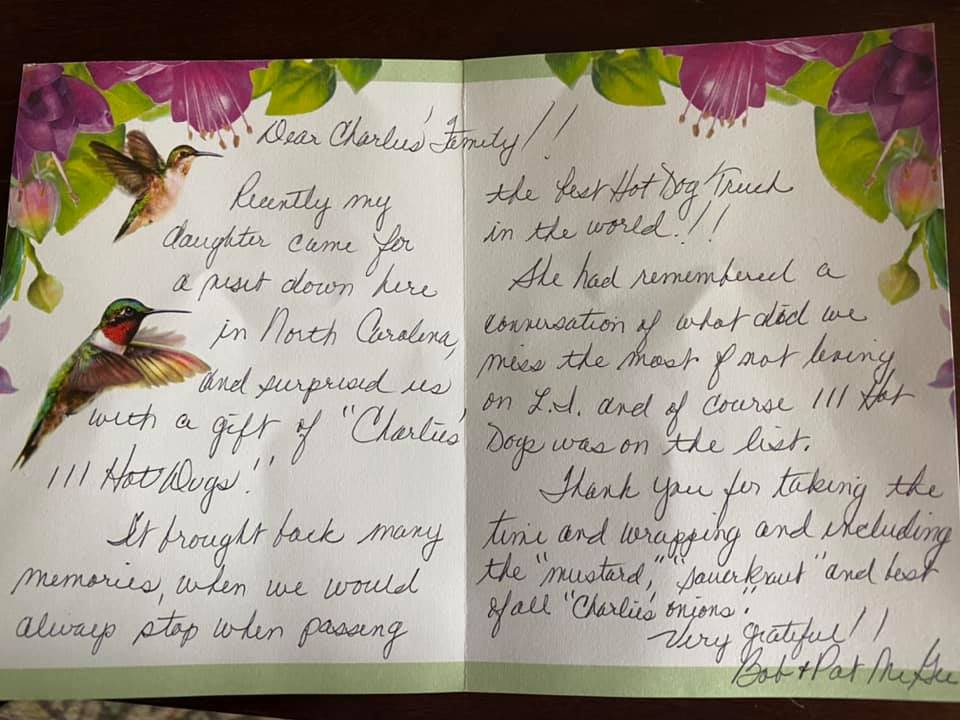 Dear Charlies' Family!!
Recently my
daughter came for
a visit down here
in North Carolina,
and surprised us
with a gift of "Charlies'
111 Hot Dogs."
It brought back many
memories, when we would
always stop when passing
the best Hot Dog Truck
in the world!!!
She had remembered a
conversation of what did we
miss the most of not living
on L.I. and of course 111 Hot
Dogs was on the list.
Thank you for taking the
time and wrapping and including
the "mustard," "sauerkraut" and best
of all "Charlie's onions".
Very grateful!!
Bob + Pat McGee